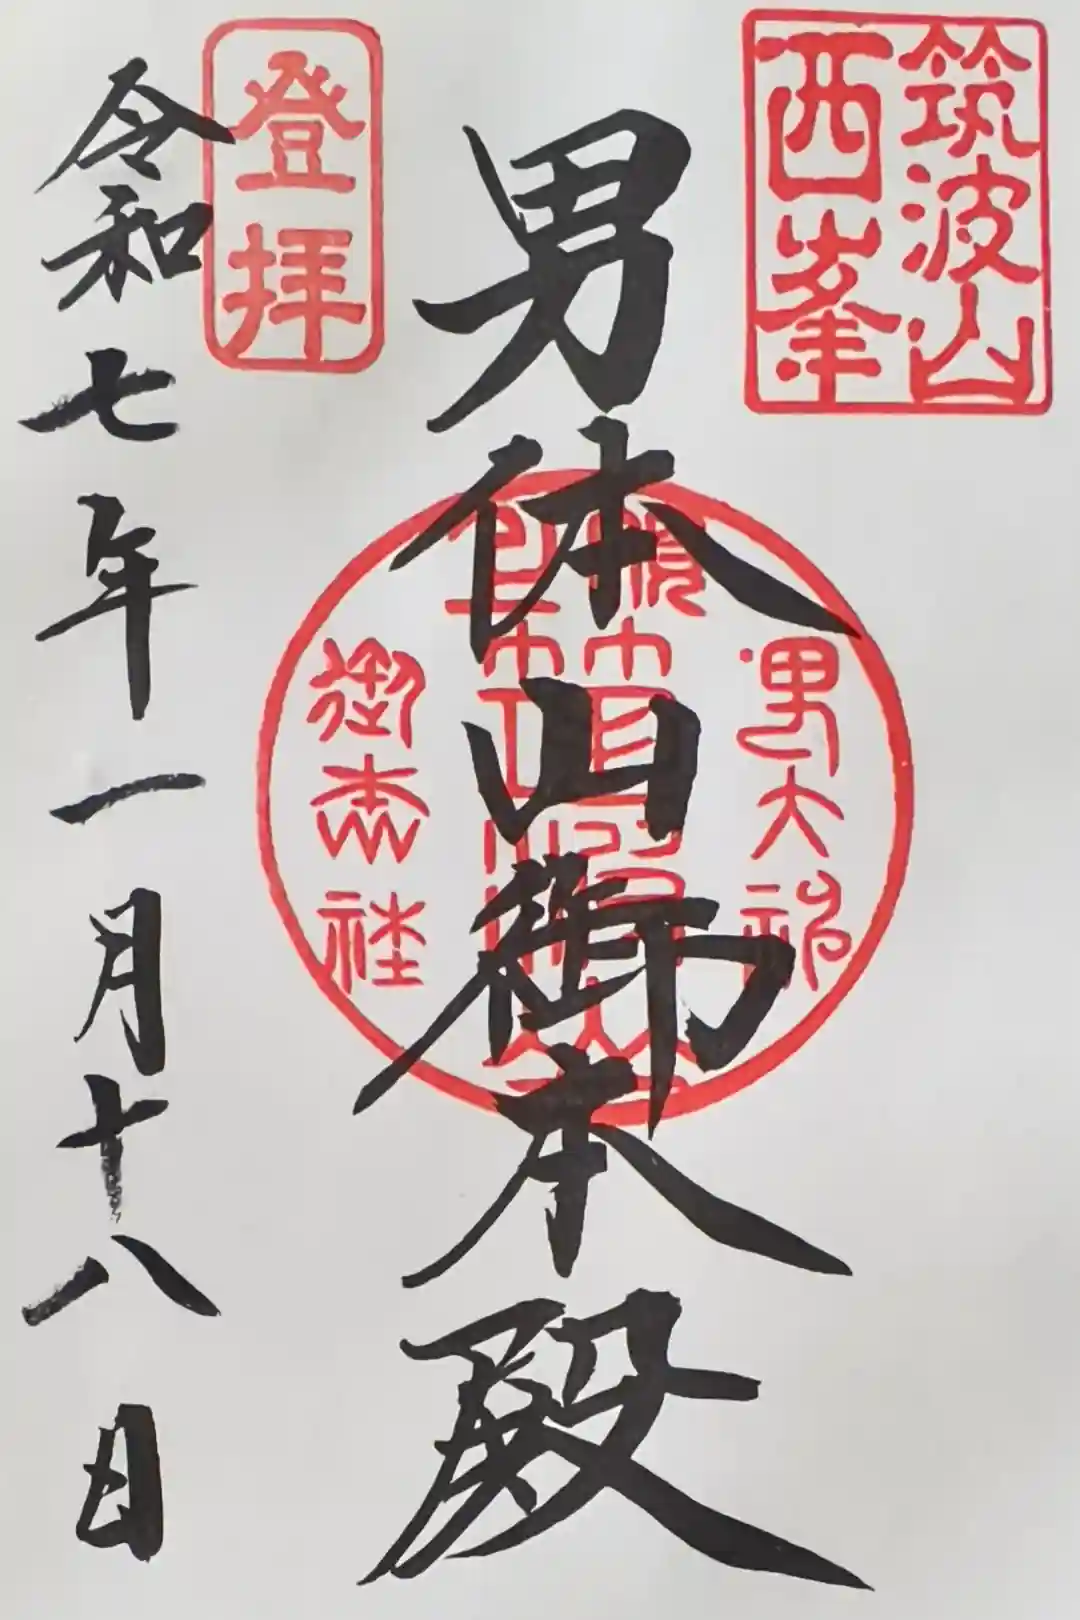 筑波山
西峯
男体山御本殿
男大神
御本社
登拝
令和七年一月十八日